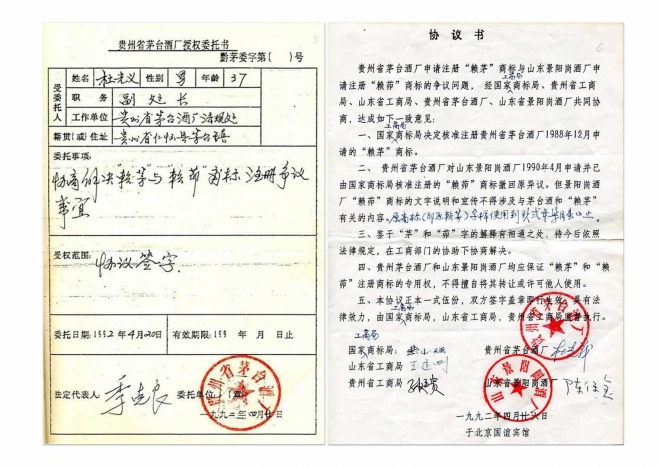 贵州省茅台酒厂授权委托书
黔茅委字第( )号
受委托人
姓名 杜光义 性别 男 年龄 37
职务 副处长
工作单位 贵州省茅台酒厂法规处
籍贯(或)住址 贵州省仁怀县茅台镇
委托事项:
协商解决"赖茅"与"赖茆"商标注册争议
事宜
授权范围:
协议签字
委托日期:1992年4月20日 有效期限:199 年 月 日止
法定代表人: 季克良 委托单位:(章)
一九九二年四月廿日
贵州省茅台酒厂
协议书
6
贵州省茅台酒厂申请注册"赖茅"商标与山东景阳岗酒厂申
请注册"赖茆"商标的争议问题,经国家工商局商标局、贵州省工商
局、山东省工商局、贵州省茅台酒厂、山东省景阳岗酒厂共同协
商,达成如下一致意见:
一、国家工商局商标局决定核准注册贵州省茅台酒厂1988年12月申
请的"赖茅"商标。
二、贵州省茅台酒厂对山东景阳岗酒厂1990年4月申请并已
由国家商标局核准注册的"赖茆"商标撤回原异议。但景阳岗酒
厂"赖茆"商标的文字说明和宣传不得涉及与茅台酒和"赖茅"
有关的内容。
三、鉴于"茅"和"茆"字的解释有相通之处,待今后依照
法律规定,在工商部门的协助下协商解决。
四、贵州茅台酒厂和山东景阳岗酒厂均应保证"赖茅"和"赖
茆"注册商标的专用权,不得擅自将其转让或许可他人使用。
五、本协议正本一式伍份,双方签字盖章即行生效,具有法
律效力,由国家工商局商标局、山东省工商局、贵州省工商局监督执行。
国家工商局商标局: 贵州省茅台酒厂
山东省工商局
贵州省工商局 山东省景阳岗酒厂
贵州省茅台酒厂
山东景阳岗酒厂
一九九二年四月廿六日
于北京国谊宾馆